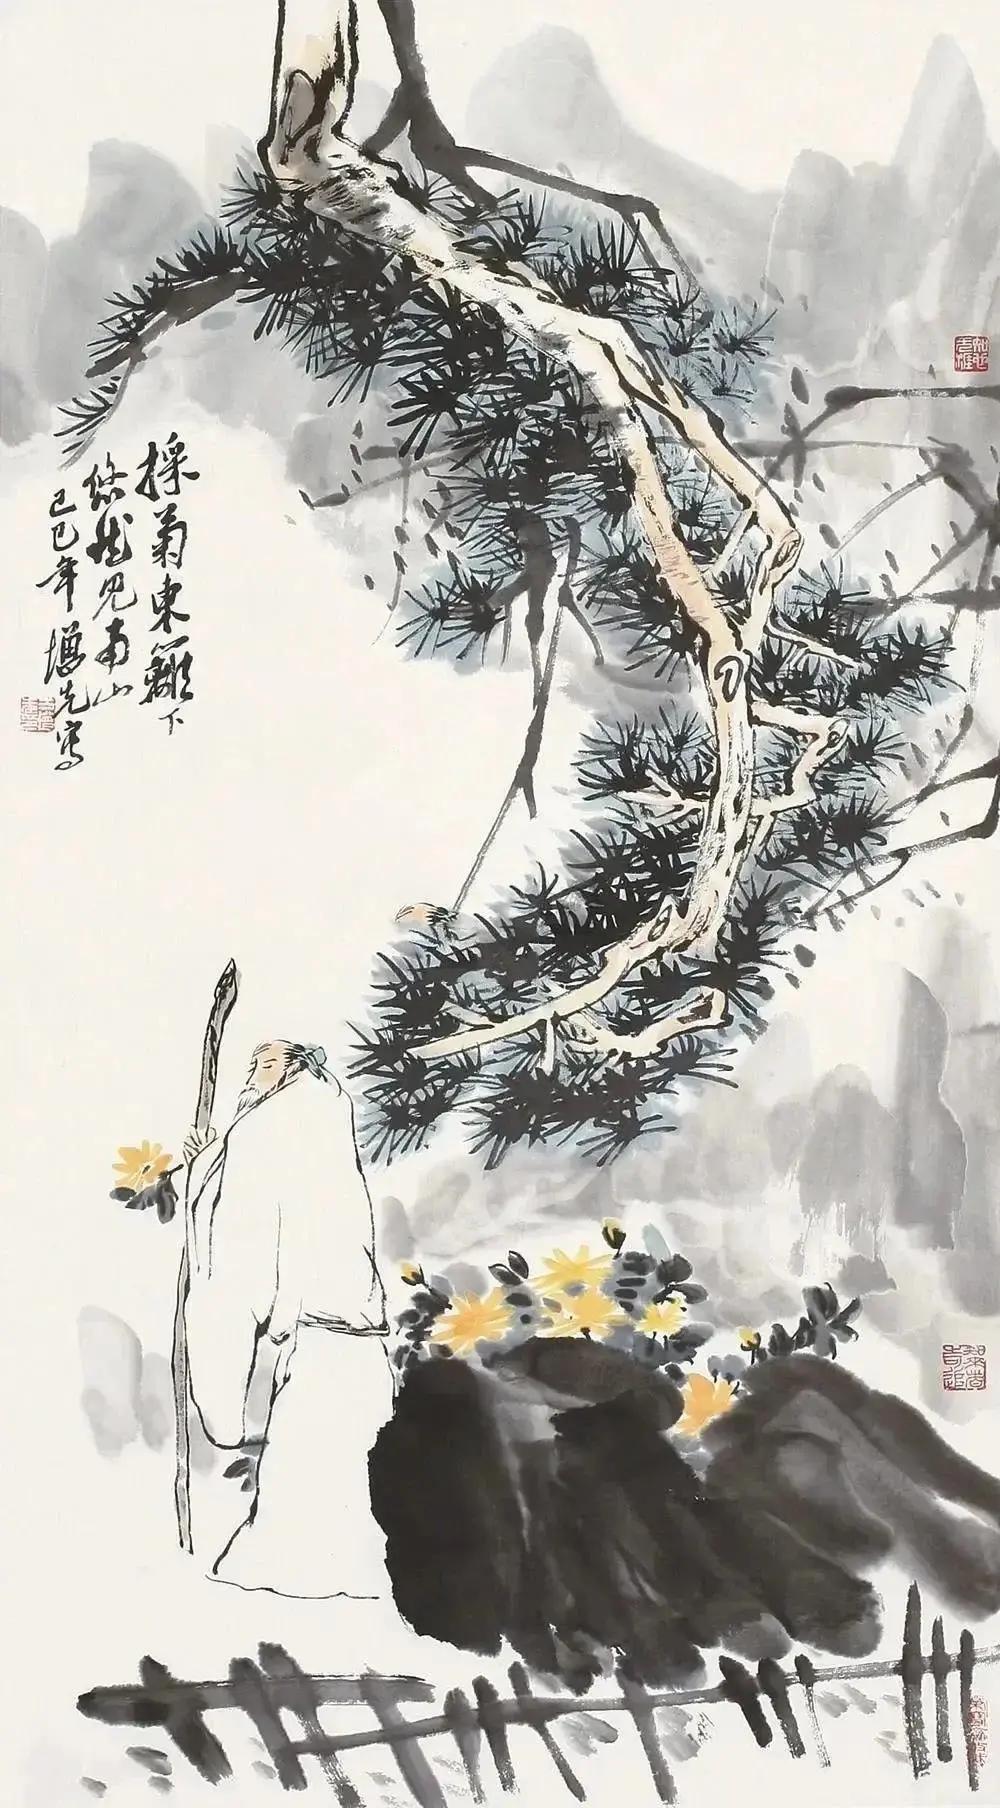 採菊東籬下
悠然见南山
己巳年增先寫